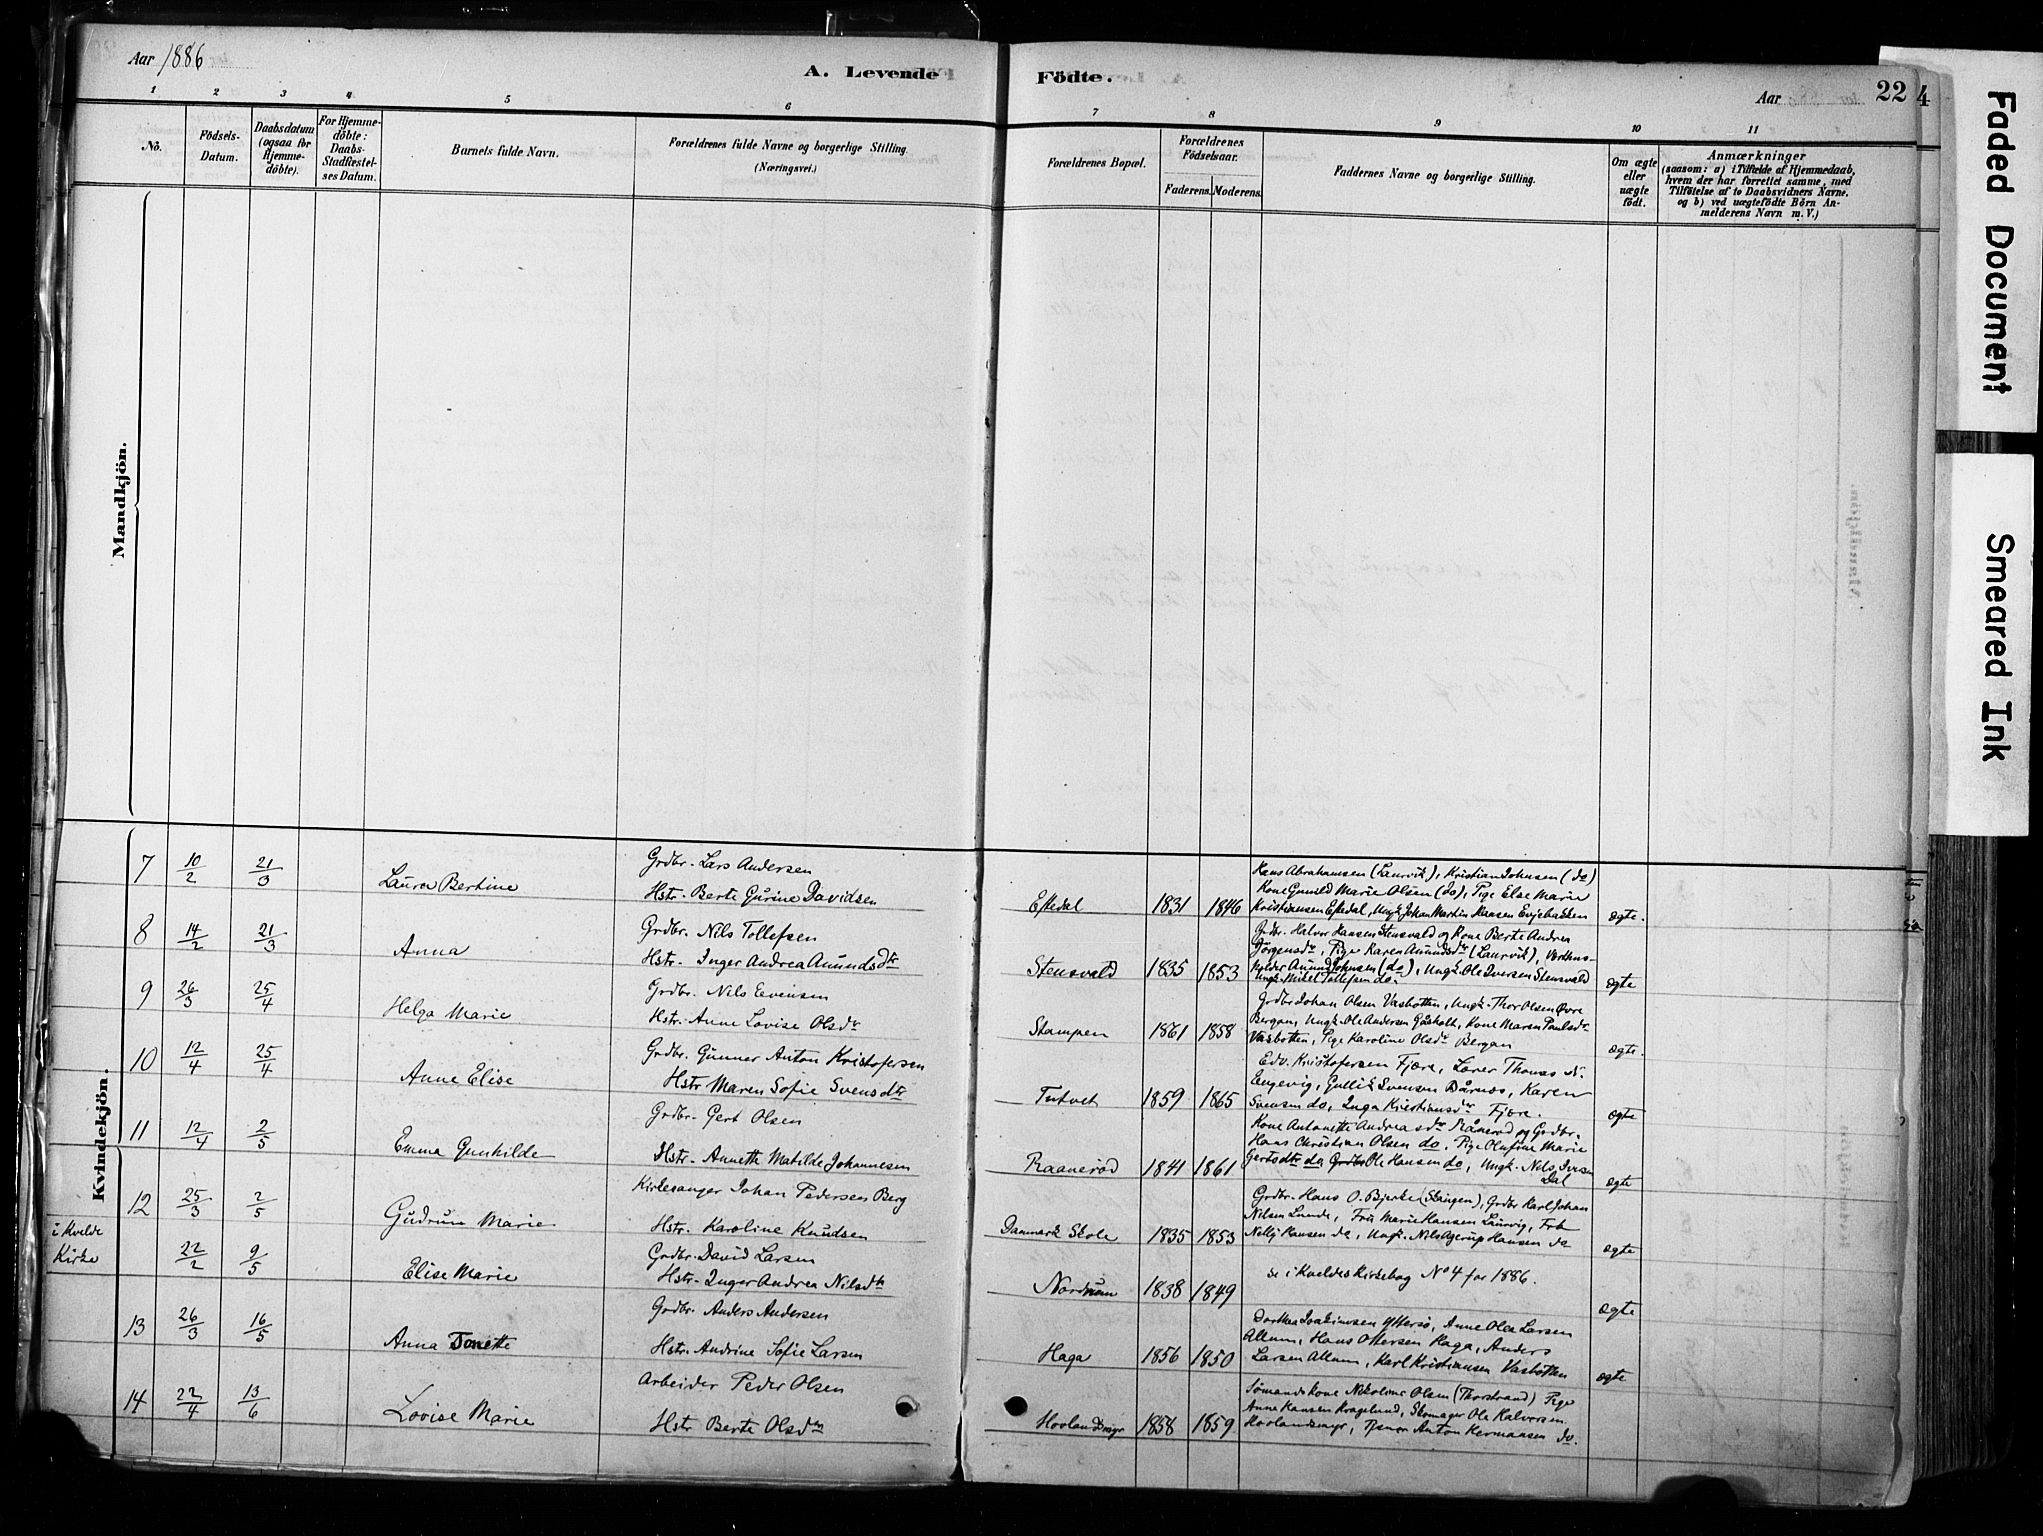 Aar 1886
A. Levende
Födte.
Aar
22
4
Faded Document
Smeared Ink
1 2 3 4 5 6 7 8 9 10 11
No.
Födsels-Datum.
Daabsdatum (ogsaa for Hjemme-döbte).
For Hjemme-döbte: Daabs-Stadfæstel-ses Datum.
Barnets fulde Navn.
Forældrenes fulde Navne og borgerlige Stilling.
(Næringsvei.)
Forældrenes Bopæl.
Forældrenes Födselsaar.
Faderens. Moderens.
Faddernes Navne og borgerlige Stilling.
Om ægte eller uægte födt.
Anmærkninger
(saasom: a) i Tilfælde af Hjemmedaab,
hvem der har forrettet samme, med
Tilföielse af to Daabsvidners Navne.
og b) ved uægtefödte Börn An-
melderens Navn m. V.)
Mandkjön.
Kvindekjön.
7 10/2 21/3 Laura Bertine
Grdbr. Lars Andersen
Hstr. Berte Gurine Davidsen
Eftedal 1831 1846
Hans Abrahamsen (Laurvik), Kristian Johnsen (do)
Kone Gunild Marie Olsen (do), Pige Else Marie
Kristiansen Eftedal, Ungk. Johan Martin Hansen Evjebakken
ægte.
8 14/2 21/3 Anna
Grdbr. Nils Tollefsen
Hstr. Inger Andrea Amundsdtr
Stensvald 1835 1853
Grdbr. Halvor Hansen Stensvald og Kone Berte Andrea
Jörgensdr, Pige Karen Amundsdtr (Laurvik), Værthus-
holder Amund Johnsen (do), Ungk. Ole Iversen Stensvald
Ungk. Mikel Tollefsen do.
ægte
9 26/3 25/4 Helga Marie
Grdbr. Nils Evensen
Hstr. Anne Lovise Olsdr
Stampen 1861 1858
Grdbr Johan Olsen Vasbotten, Ungk. Thor Olsen Övre
Bergan, Ungk. Ole Andersen Gåsholt, Kone Maren Paulsdr
Vasbotten, Pige Karoline Olsdr Bergan
ægte.
10 12/4 25/4 Anne Elise
Grdbr. Gunner Anton Kristofersen
Hstr Maren Sofie Svensdtr
Tutvet 1859 1865
Edv. Kristofersen Fjære, Lærer Thomas N.
Engevig, Gullik Svensen Bårnæs, Karen
Svensen do, Inga Kristiansdtr Fjære.
ægte
11 12/4 2/5 Emma Gunhilde
Grdbr. Gert Olsen
Hstr. Annette Matilde Johannesen
Raanerød 1841 1861
Kone Antonette Andreasdr Rånerød og Grdbr.
Hans Christian Olsen do, Pige Olufine Marie
Gertsdtr do Grdbr Ole Hansen do, Ungk. Nils Iversen
Dal
ægte
12 25/3 2/5 Gudrun Marie
Kirkesanger Johan Pedersen Berg
Hstr. Karoline Knudsen
Danmark Skole 1835 1853
Grdbr. Hans O. Bjerke (Stangen), Grdbr Karl Johan
Nilsen Lunde, Fru Marie Hansen Laurvig, Frk
Nelly Hansen do, Ungk. Nils Agerup Hansen do
ægte
i Kvelde
Kirke
22/2 9/5 Elise Marie
Grdbr. David Larsen
Hstr. Inger Andrea Nilsdtr
Nordrum 1838 1849
se i Kveldes Kirkebog No 4 for 1886.
ægte
13 26/3 16/5 Anna Tonette
Grdbr. Anders Andersen
Hstr. Andrine Sofie Larsen
Haga 1856 1850
Dorthea Joakimsen Yttersø, Anne Olea Larsen
Allum, Hans Ottersen Haga, Anders
Larsen Allum, Karl Kristiansen Vasbotten
ægte
14 22/4 13/6 Lovise Marie
Arbeider Peder Olsen
Hstr Berte Olsdtr
Hovlandsmyr 1858 1859
Sømandskone Nikoline Olsen (Thorstrand) Pige
Anne Hansen Kragelund, Skomager Ole Halvorsen
Hovlandsmyr, Tjener Anton Hermansen do.